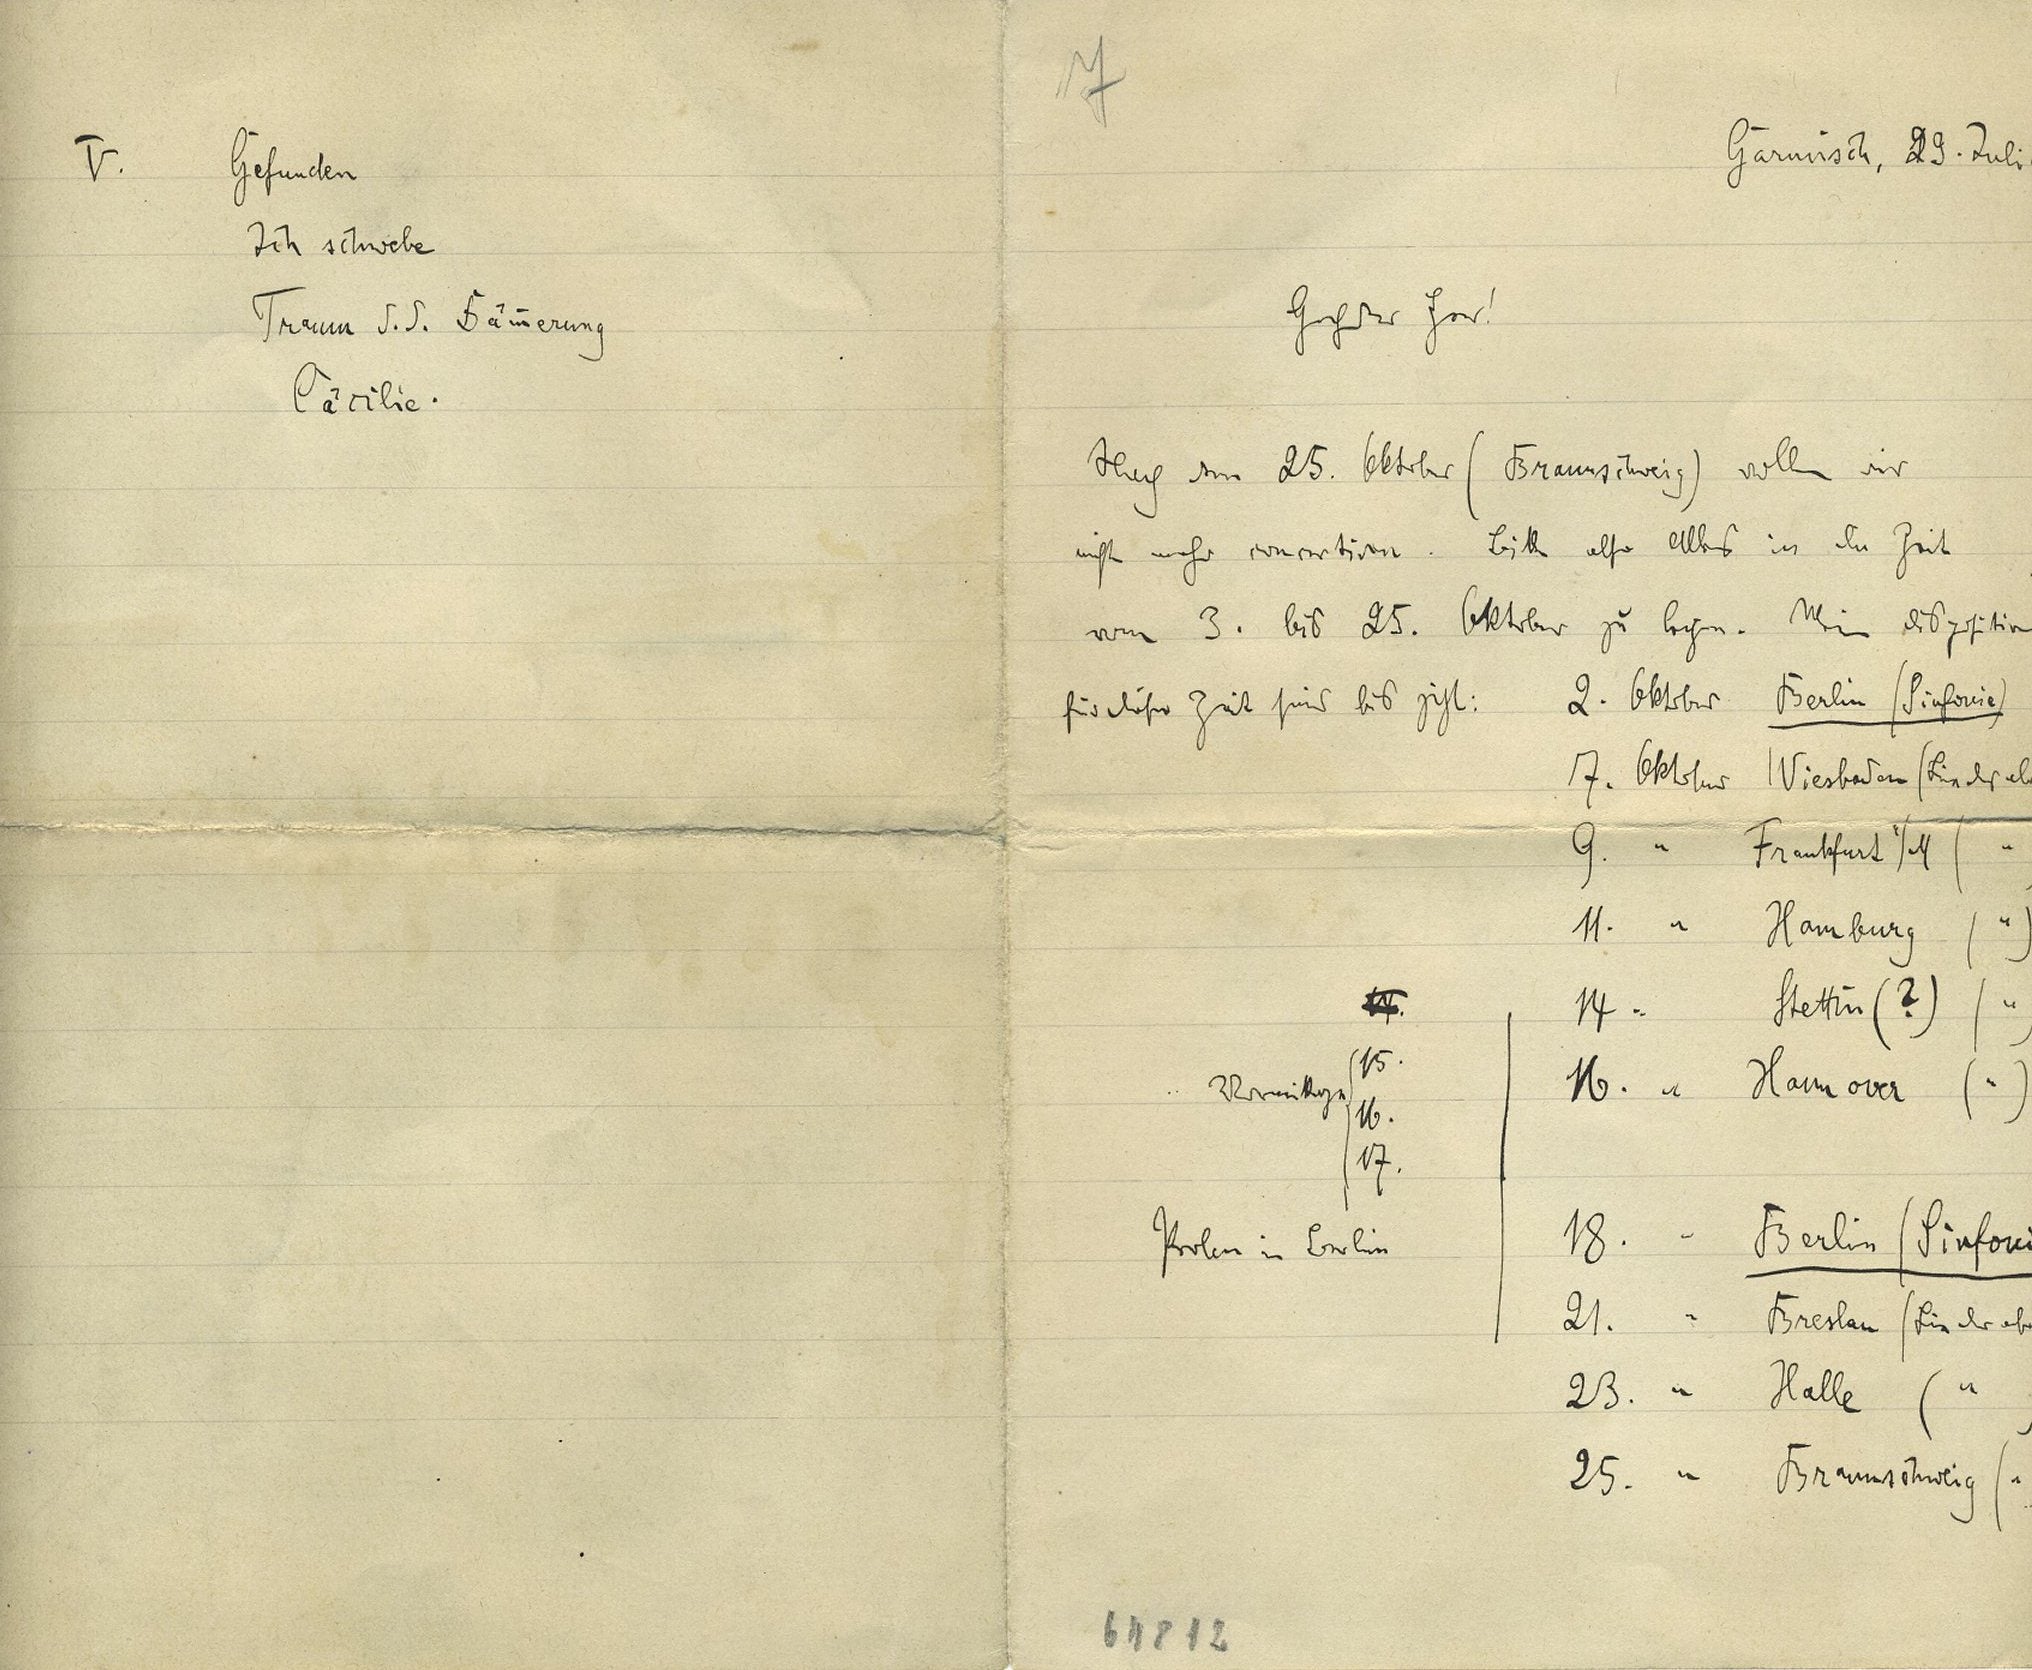 V. Gefunden
Ich schwebe
Traum d. d. Dämerung
Cäcilie.
7
Garmisch, 29. Juli
Geehrter Herr!
Nach dem 25. Oktober (Braunschweig) wollen wir
nicht mehr concertiren. Bitte also Alles in die Zeit
vom 3. bis 25. Oktober zu legen. Meine Disposition
für diese Zeit sind bis jetzt: 2. Oktober Berlin (Sinfonie)
7. Oktober Wiesbaden (Liederab
9. " Frankfurt a/M ( "
11. " Hamburg ( " )
14 " Stettin (?) ( " )
16. " Hannover ( " )
Vormittags
15.
16.
17.
Proben in Berlin
18. " Berlin (Sinfoni
21. " Breslau (Liederab
23. " Halle ( " )
25. " Braunschweig ( "
64812